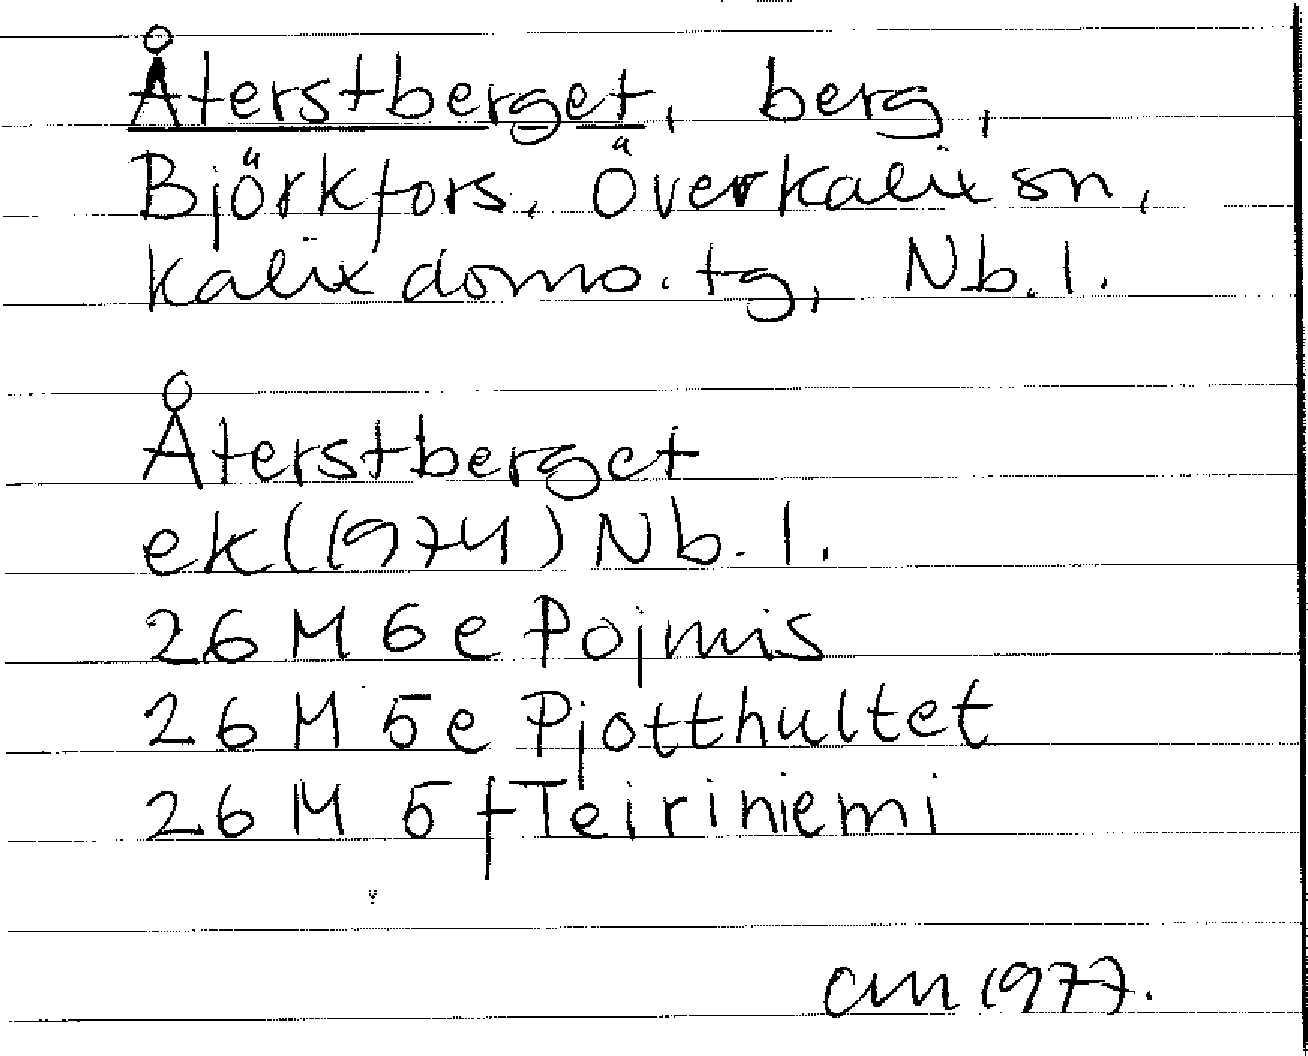 Återstberget, berg,
Björkfors, Överkalix sn,
Kalix doms. tg, Nb. l.
Återstberget
ek (1974) Nb. l.
26 M 6e Pojmis
26 M 5e Pjotthultet
26 M 5f Teiriniemi
CM 1977.